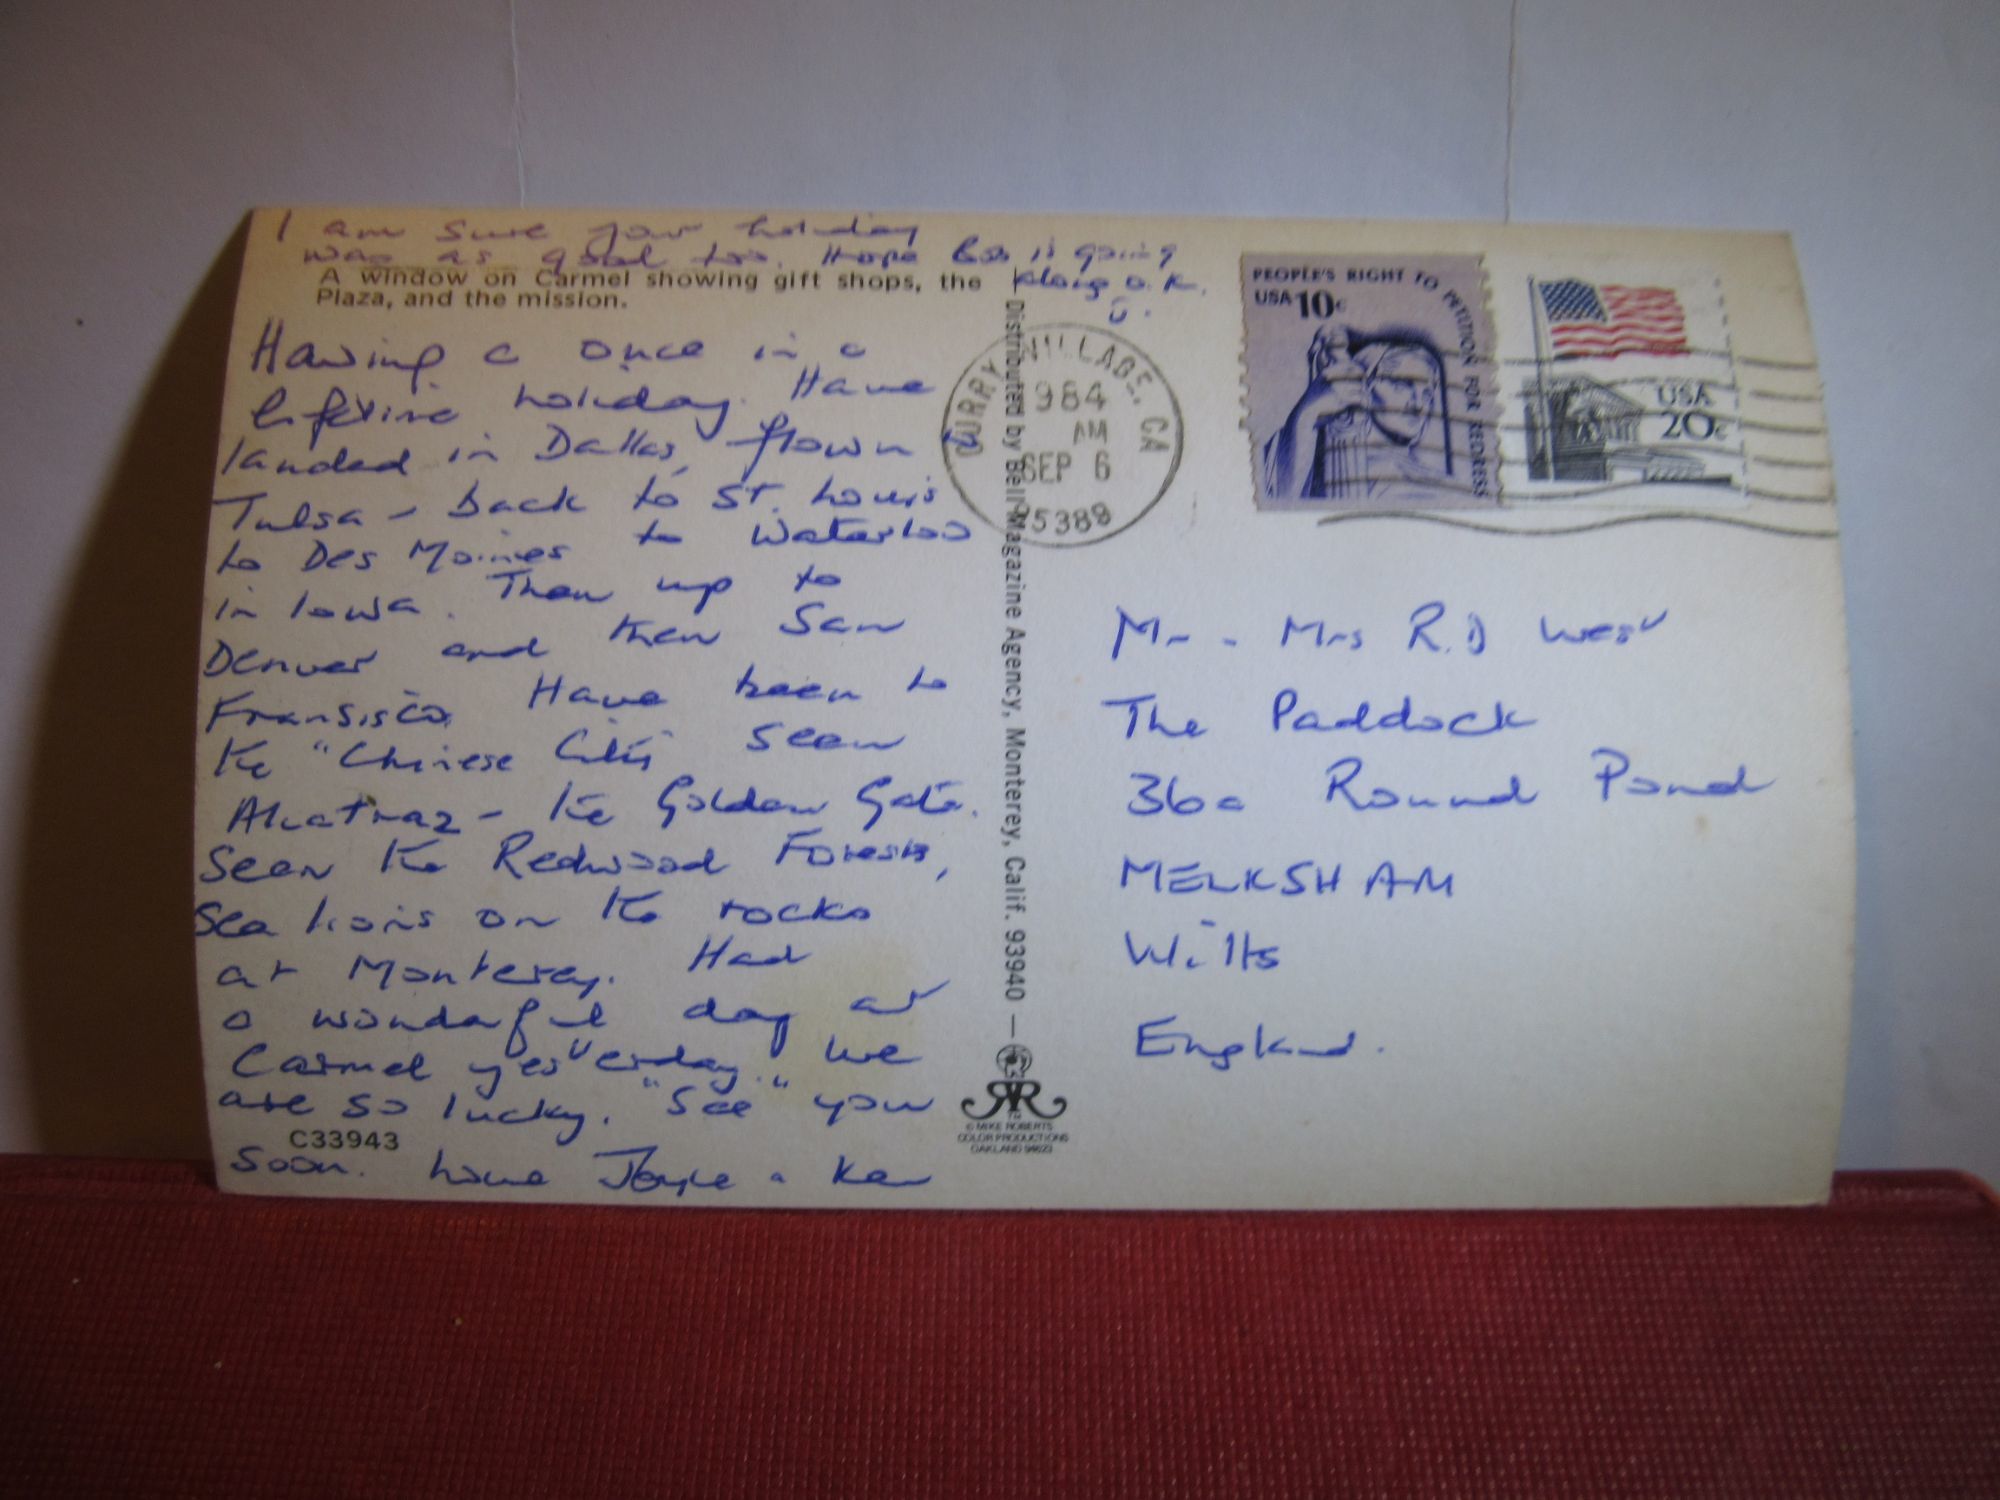 I am sure your holiday
was as good too. Hope Bob is going
along o.k.
A window on Carmel showing gift shops, the
Plaza, and the mission.
Having a once in a
lifetime holiday. Have
landed in Dallas, flown
Tulsa - back to St. Louis
to Des Moines to Waterloo
in Iowa. Then up to
Denver and then San
Fransisco. Have been to
the "Chinese City" seen
Alcatraz - the Golden Gate.
Seen the Redwood Forests,
Sea lions on the rocks
at Monterey. Had
a wonderful day at
Carmel yesterday. We
are so lucky. "See" you
C33943
soon. Love Joyce & Ken
Distributed by Bell Magazine Agency, Monterey, Calif. 93940 —
© MIKE ROBERTS
COLOR PRODUCTIONS
OAKLAND 94623
CURRY VILLAGE, CA
984
AM
SEP 6
95389
PEOPLE'S RIGHT TO PETITION FOR REDRESS
USA 10c
USA
20c
Mr & Mrs R.D West
The Paddock
36a Round Pond
MELKSHAM
Wilts
England.